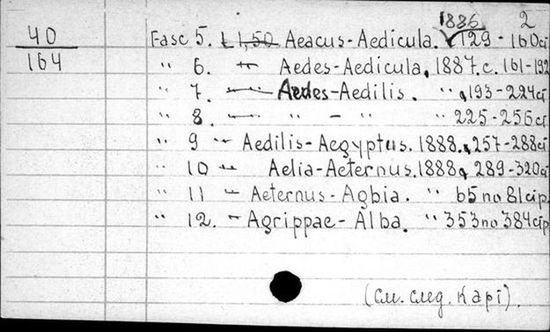 1886 2
40 Fasc 5. L 1,50 Aeacus-Aedicula. 129-160ci
164 " 6. " Aedes-Aedicula, 1887.c. 161-192
" 7. — Aedes-Aedilis. " 193-224ci
" 8. — " - " 225-256ci
" 9 " Aedilis-Aegyptus. 1888. 257-288ci
" 10 " Aelia-Aeternus. 1888. 289-320ci
" 11 — Aeternus-Agbia. " 65 по 81 cip
" 12. — Agrippae-Alba. " 353 по 384 cip
(см. след. карт).